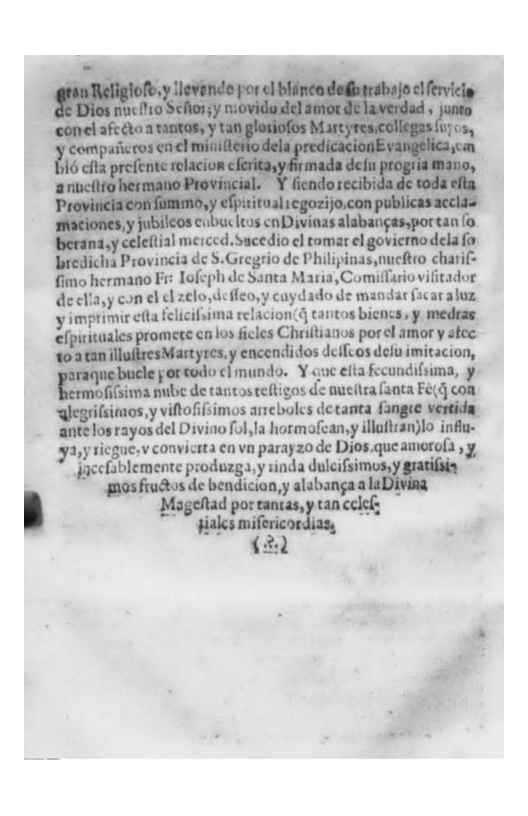 gran Religioſo, y llevando por el blanco de ſu trabajo el ſervicio
de Dios nueſtro Señor; y movido del amor de la verdad, junto
con el afecto a tantos, y tan glorioſos Martyres, collegas ſuyos,
y compañeros en el miniſterio dela predicacion Evangelica, em
bió eſta preſente relacion eſcrita, y firmada deſu propria mano,
a nueſtro hermano Provincial. Y ſiendo recibida de toda eſta
Provincia con ſummo, y eſpiritual regozijo, con publicas accla-
maciones, y jubileos enbueltos en Divinas alabanças, por tan ſo
berana, y celeſtial merced. Sucedio el tomar el govierno dela ſo
bredicha Provincia de S. Gregrio de Philipinas, nueſtro chariſ-
ſimo hermano Fr: Ioſeph de Santa Maria, Comiſſario viſitador
de ella, y con el el zelo, deſſeo, y cuydado de mandar ſacar a luz
y imprimir eſta feliciſsima relacion (q̃ tantos bienes, y medras
eſpirituales promete en los fieles Chriſtianos por el amor y afec
to a tan illuſtres Martyres, y encendidos deſſeos deſu imitacion,
paraque buele por todo el mundo. Y que eſta fecundiſsima, y
hermoſiſsima nube de tantos teſtigos de nueſtra ſanta Fè (q̃ con
alegriſsimos, y viſtoſiſsimos arreboles de tanta ſangre vertida
ante los rayos del Divino ſol, la hormoſean, y illuſtran) lo influ-
ya, y riegue, y convierta en vn parayzo de Dios, que amoroſa, y
inceſablemente produzga, y rinda dulciſsimos, y gratiſsi-
mos fructos de bendicion, y alabança a la Divina
Mageſtad por tantas, y tan celeſ-
tiales miſericordias.